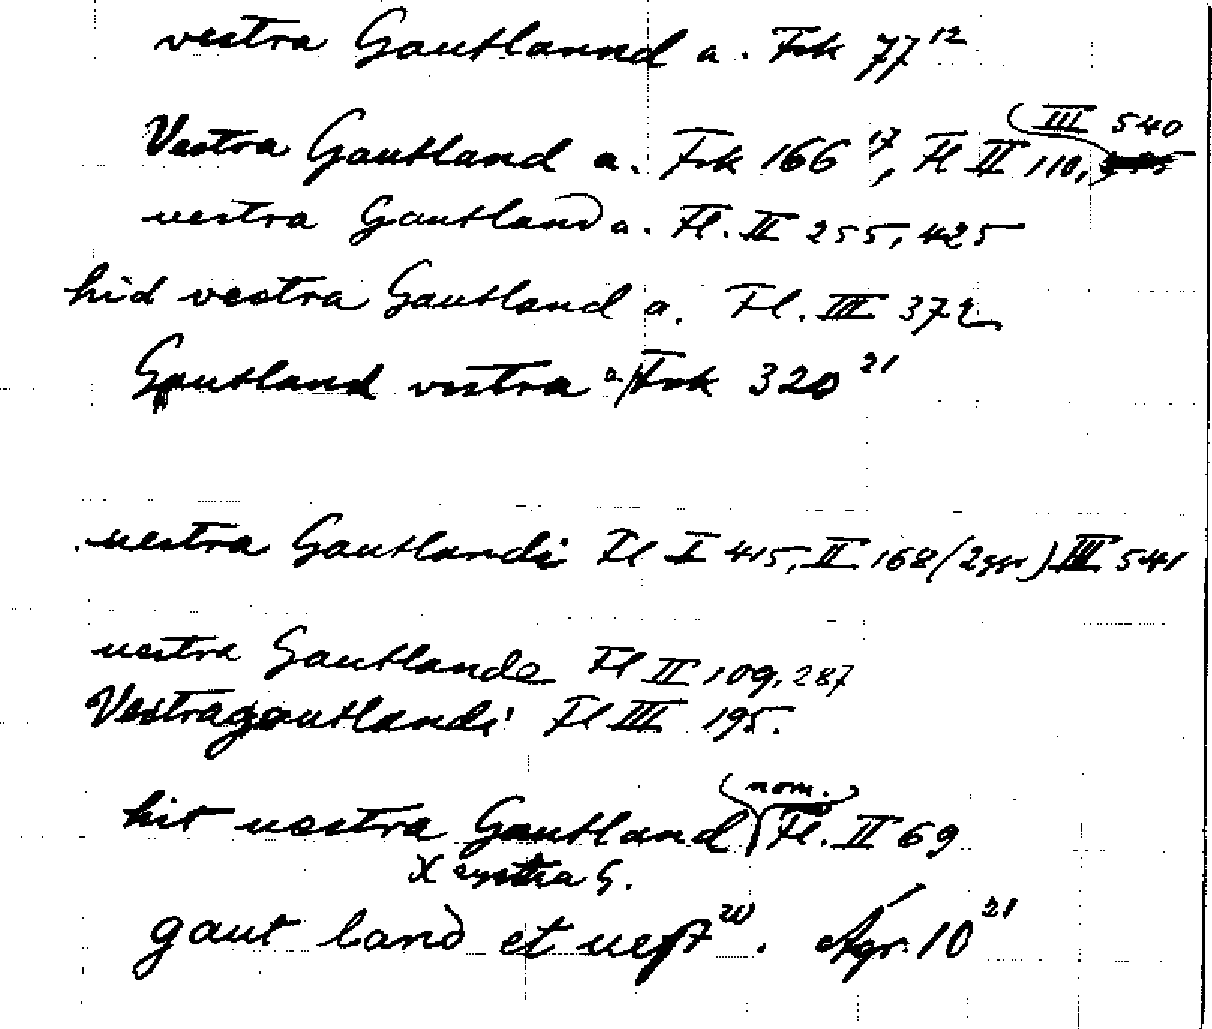 vestra Gautlannd a. Fsk 77¹²
Vestra Gautland a. Fsk 166¹⁷, Fl II 110, III 540
vestra Gautland a. Fl. II 255, 425
hid vestra Gautland a. Fl. III 372
Gautland vestra a Fsk 320²¹
uestra Gautlandi Fl I 415, II 168 (2ggr) III 541
uestra Gautlande Fl II 109, 287
Vestragautlandi Fl III 195.
hit uestra Gautland (nom.) Fl. II 69
X eystra G.
gaut land et uest²⁰. Agr. 10²¹